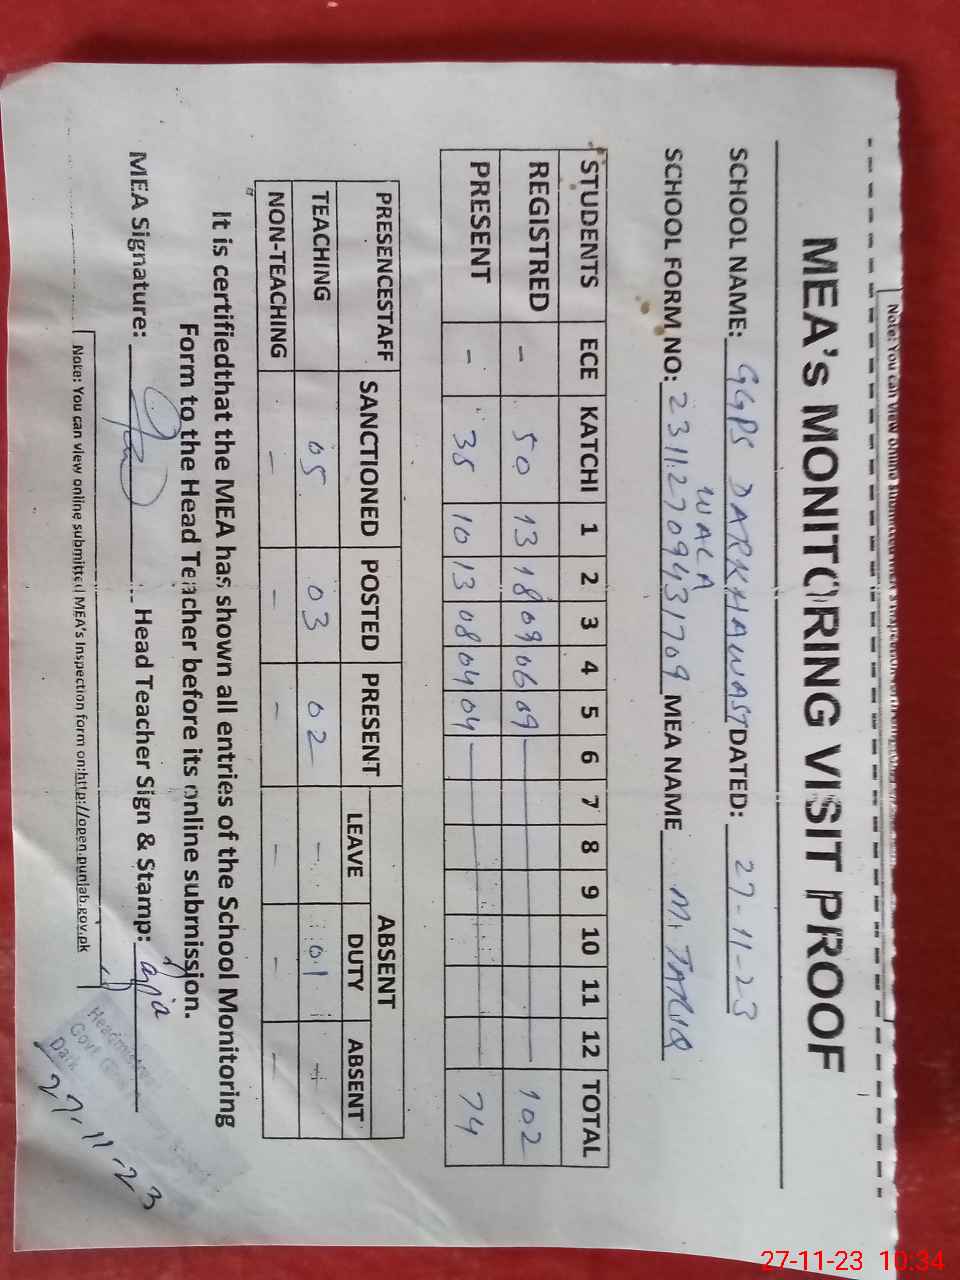 Note: You can view online submitted
MEA's MONITORING VISIT PROOF
SCHOOL NAME: GGPS DARKHAWAST DATED: 27-11-23
WALA
SCHOOL FORM NO: 23112709431709 MEA NAME M. TARIQ
STUDENTS ECE KATCHI 1 2 3 4 5 6 7 8 9 10 11 12 TOTAL
REGISTRED - 50 13 18 09 06 09 102
PRESENT - 35 10 13 08 04 04 74
PRESENCESTAFF SANCTIONED POSTED PRESENT ABSENT
LEAVE DUTY ABSENT
TEACHING 05 03 02 - 01 -
NON-TEACHING - - - - - -
It is certifiedthat the MEA has shown all entries of the School Monitoring
Form to the Head Teacher before its online submission.
MEA Signature: Head Teacher Sign & Stamp:
Headmistress
Govt Girls
Dark
27-11-23
Note: You can view online submitted MEA's Inspection form on:http://open.punjab.gov.pk
27-11-23 10:34